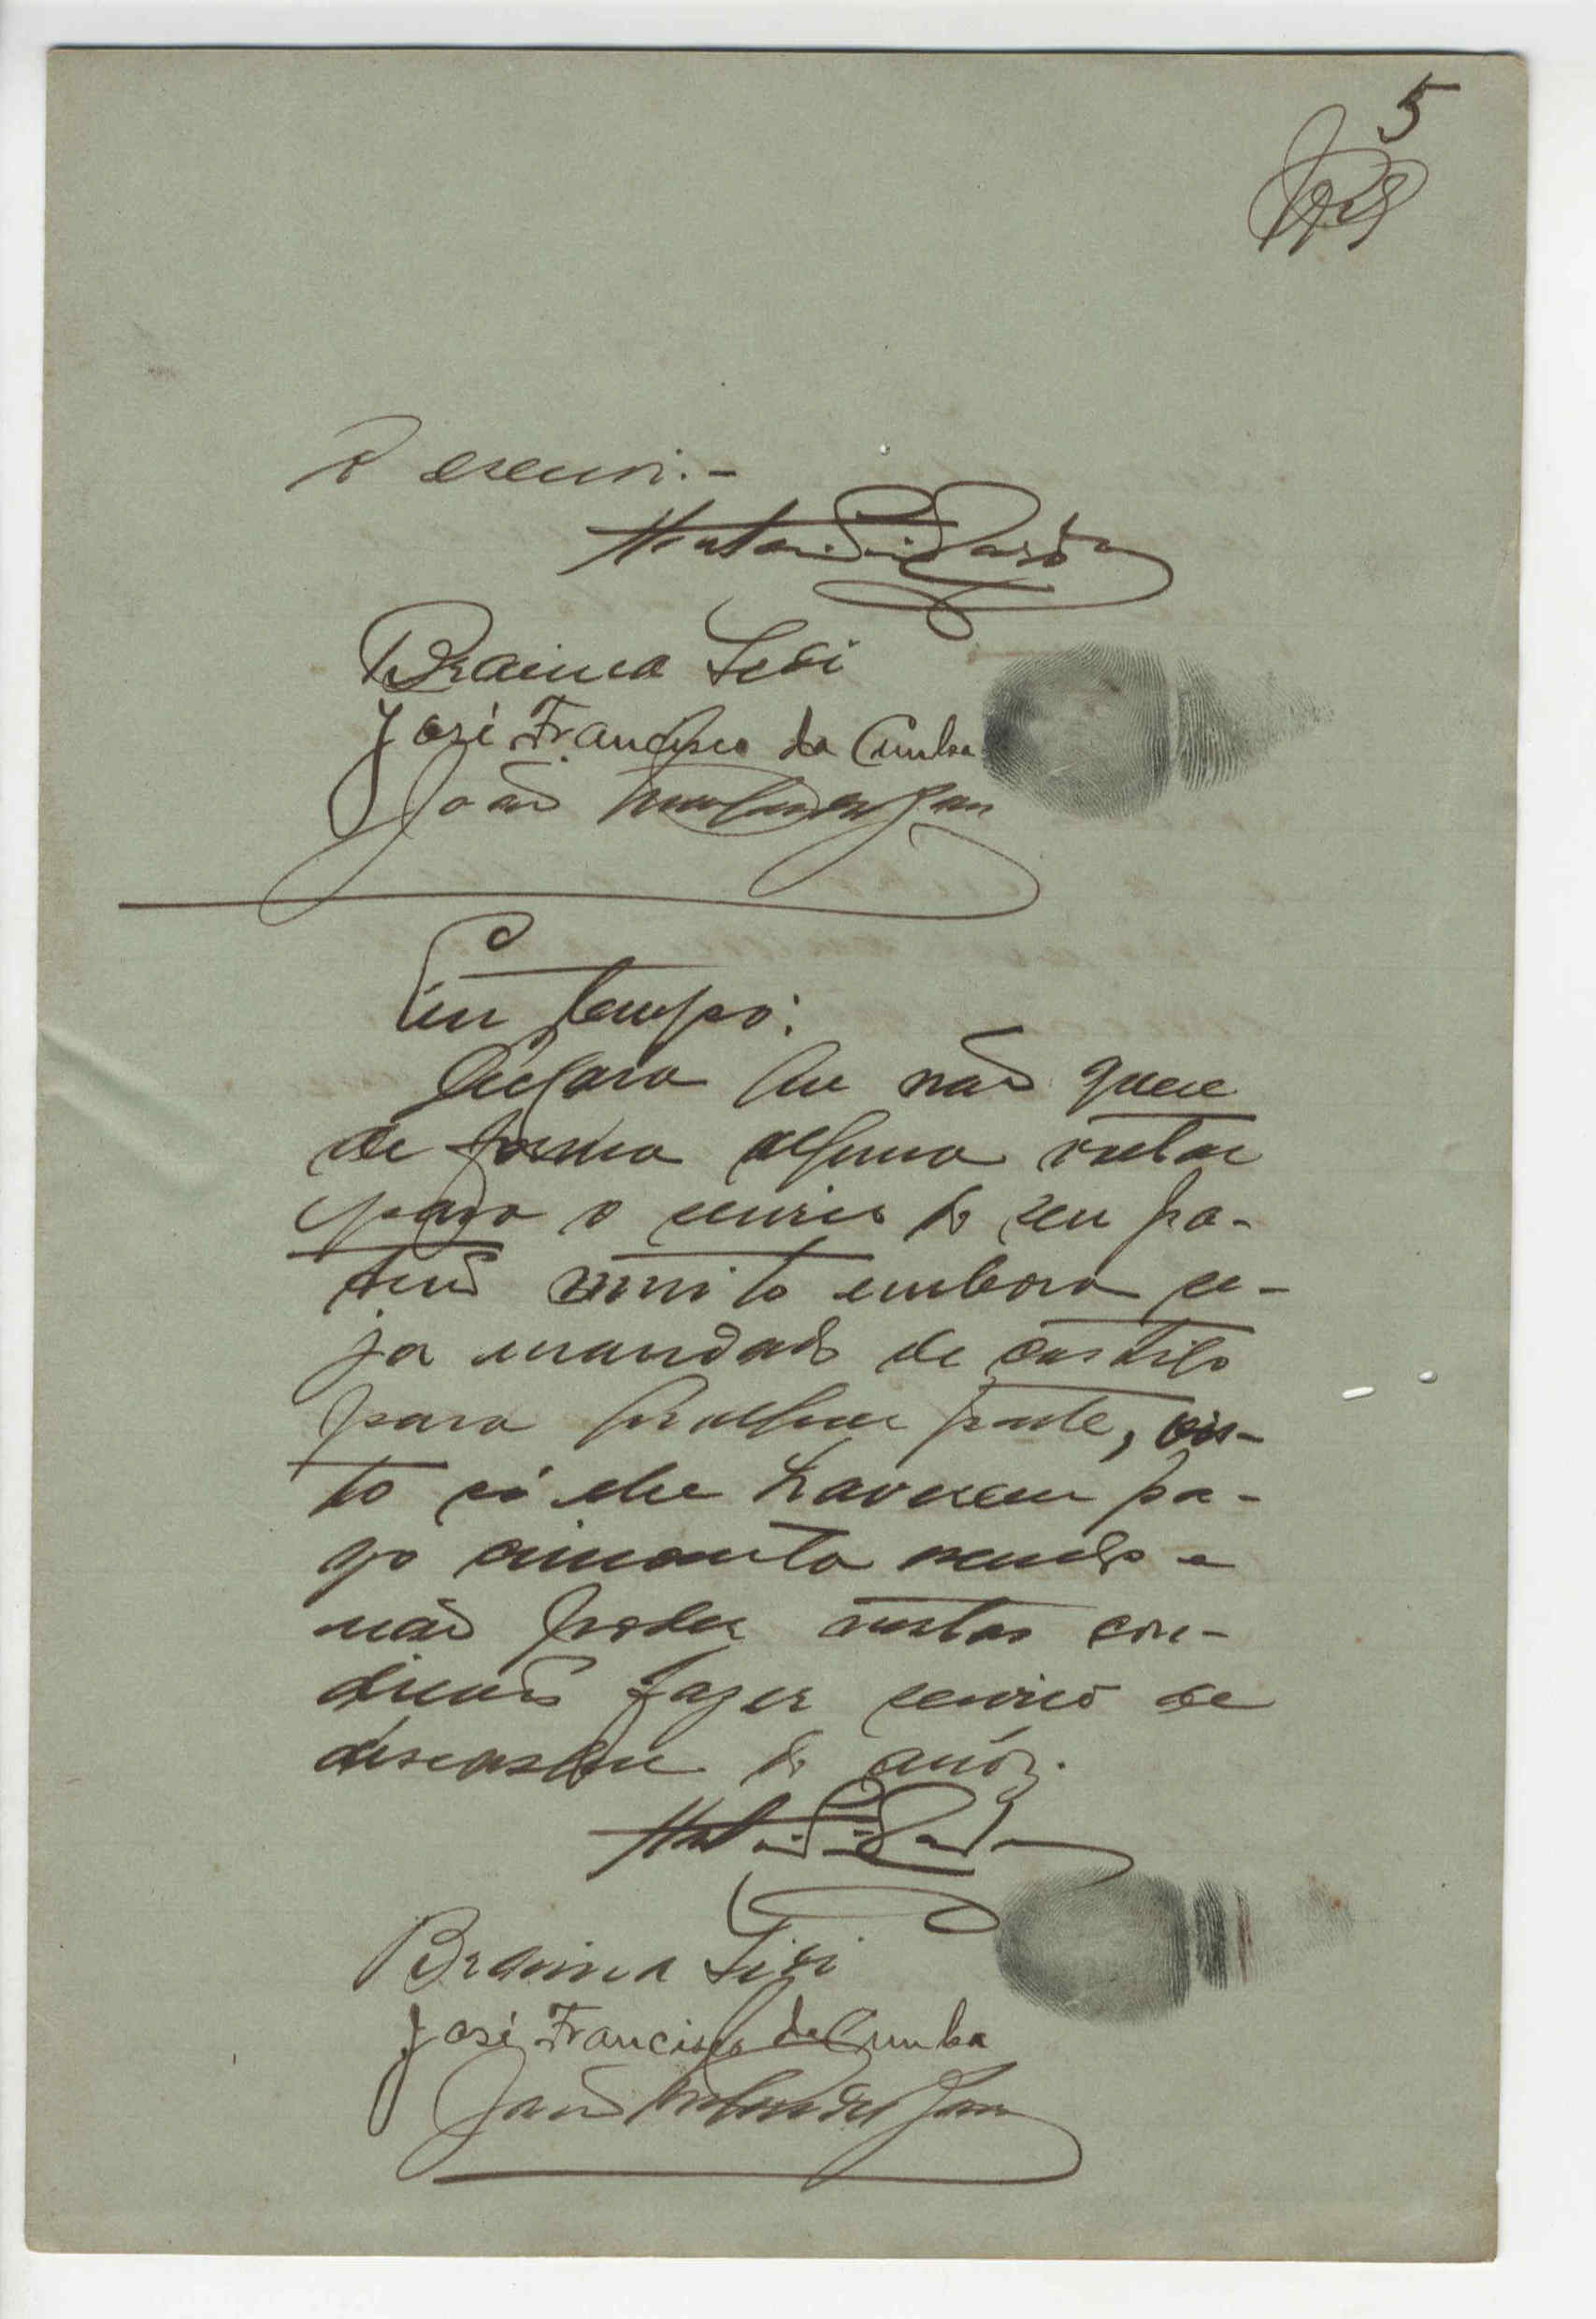 5
o escrevi.-
Braima Sisi
José Francisco da Cunha
João
Em tempo:
Declara que não quere
de forma alguma voltar
para o serviço do seu pa-
trão muito embora se-
ja mandado de castigo
para qualquer parte, vis-
to só lhe haverem pa-
go cincoenta escudos e
não poder nestas con-
dicões fazer serviço de
descasque de arrôz.
Braima Sisi
José Francisco da Cunha
João